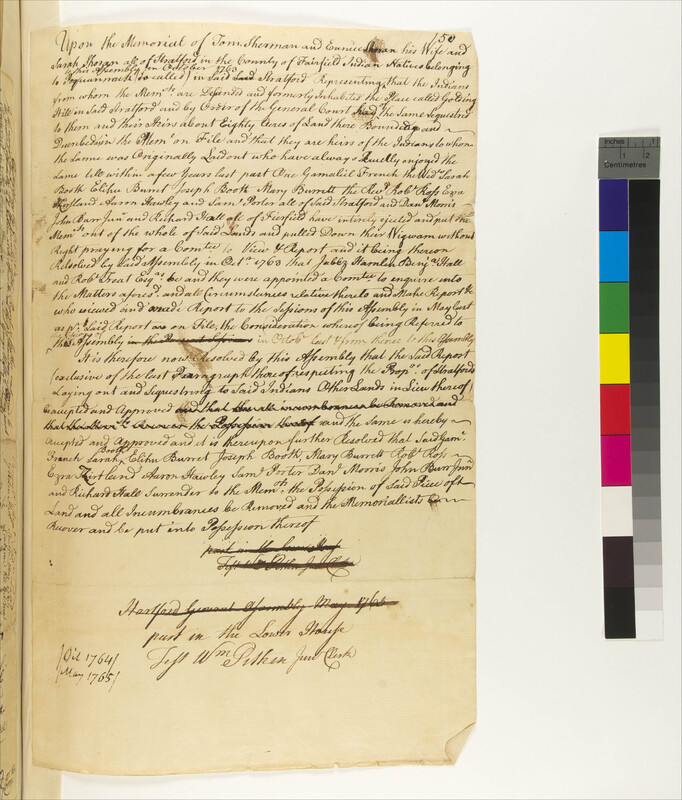 150
Upon the Memorial of Tom Sherman and Eunice Shoran his Wife and
Sarah Shoran all of Stratford in the County of Fairfield Indian Natives belonging
this Assembly in October 1763
to (so called) in Said Stratford Representing that the Indians
from whom the Memts. are Desended and formerly Inhabited the Place called Golding
Hill in Said Stratford and by Order of the General Court had the Same Sequestred
to them and their Heirs about Eighty Acres of Land there Bounded and
the Memo. on File and that they are heirs of the Indians to whom
the Same was Originally Laidout who have always Quietly enjoyed the
Same till within a few Years last past One Gamaliel French the Wid. Sarah
Booth Elihu Burret Joseph Booth Mary Burrett the Revd. Robt. Ross Ezra
Kirtland Aaron Hawley and Samll. Porter all of Said Stratford and Danll. Morris
John Burr Junr. and Richard Hall all of Fairfield have intirely ejected and put the
Memts. out of the whole of Said Lands and pulled Down their Wigwam without
Right praying for a Comtee to View & Report and it being thereon
Resolved by Said Assembly in Octr. 1763 that Jabez Hamlin Benja. Hall
and Robt. Treat Esqrs. be and they were appointed a Comtee. to enquire into
the Matters afores. and all Circumstances relative thereto and Make Report &c
who viewed and made Report to the Sessions of this Assembly in May last
as pr. Said Report on File, the Consideration whereof being Referred to
this Assembly in the Present Session in Octobr. last & from thence to this Assembly
It is therefore now Resolved by this Assembly that the Said Report
(exclusive of the last Paragraph thereof respecting the Propr. of Stratfords
Laying out and Sequestring to Said Indians Other Lands in Lieu thereof
accepted and Approved and that the all incumbrances be Removed and
that the Memts. Recover the Possession thereof and the Same is hereby
accepted and Approved and it is thereupon further Resolved that Said Gaml.
Booth
French Sarah, Elihu Burret Joseph Booth, Mary Burrett Robt. Ross
Ezra Kirtland Aaron Hawley Saml. Porter Danl. Morris John Burr Junr.
and Richard Hall Surrender to the Memts. the Possession of Said Piece of
Land and all Incumbrances be Removed and the Memoriallists
Recover and be put into Possession thereof
past in the Lower House
Test Wm Pitkin Junr Clerk
Hartford General Assembly May 1765
past in the Lower House
Test Wm Pitkin Junr Clerk
[Oct 1764]
[May 1765]
Inches
1
2
Centimetres